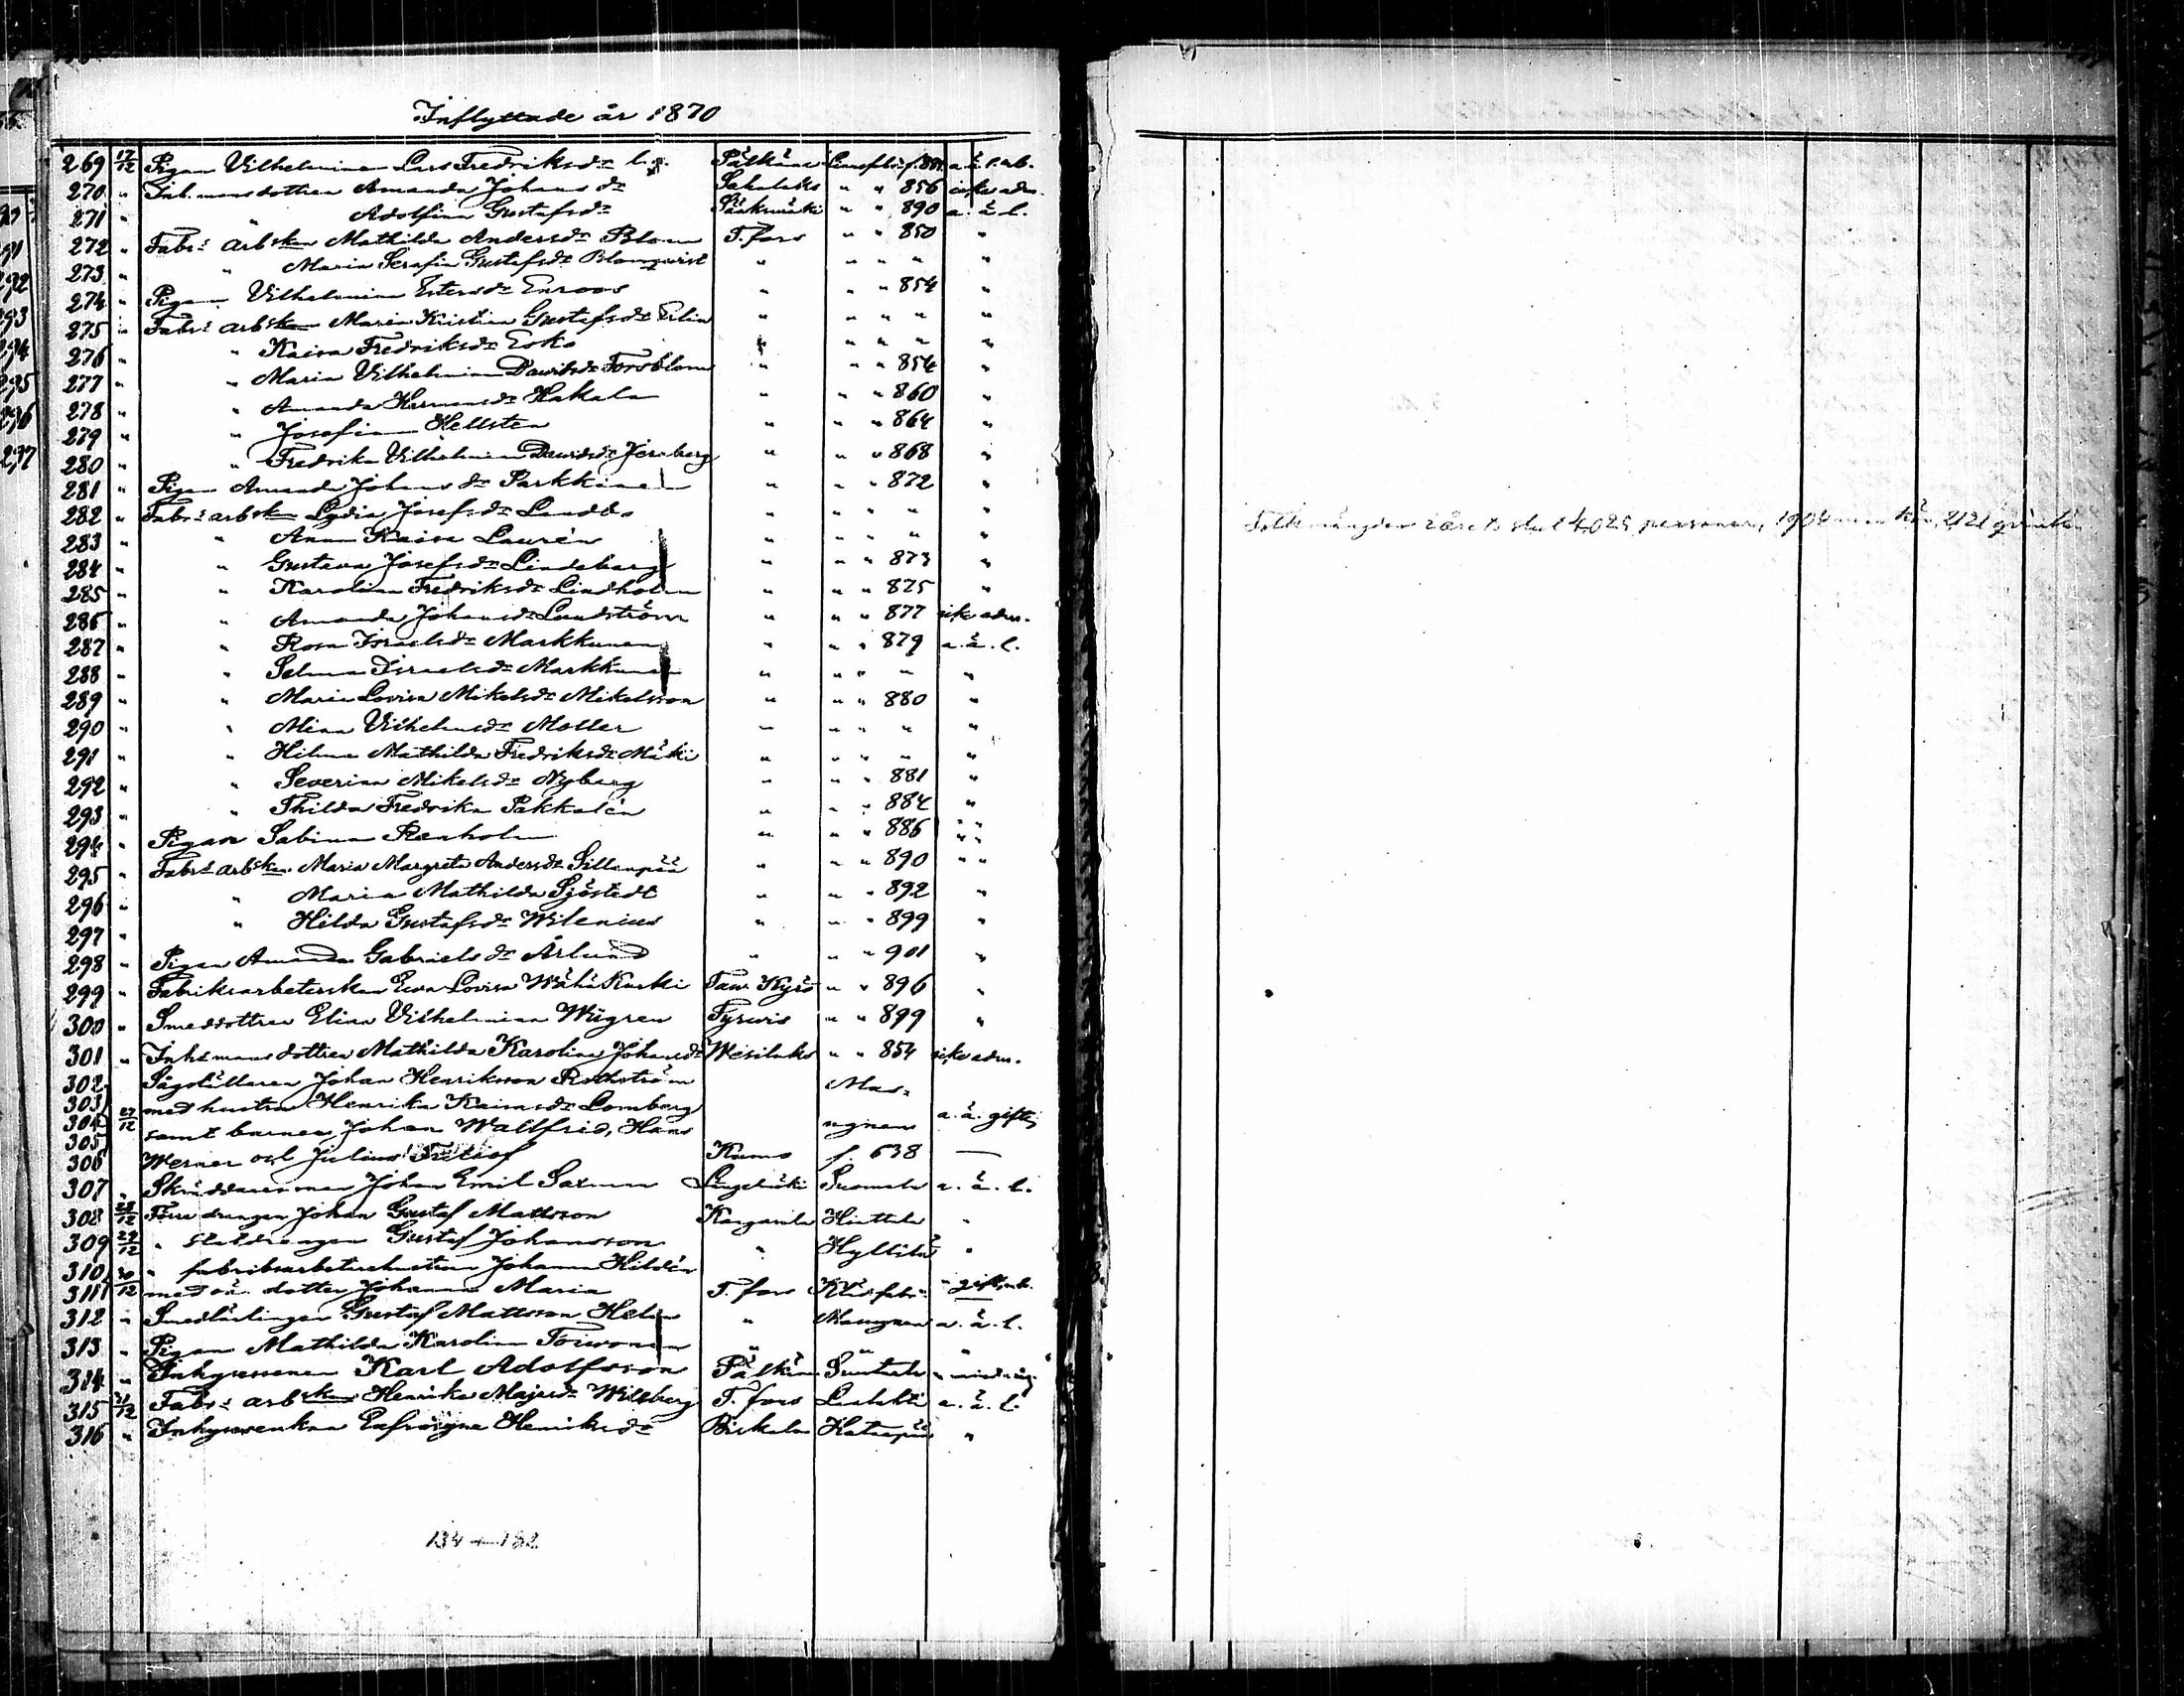 Inflyttade år 1870
269 17/12 Pigan Vilhelmina Lars Fredriksdr Pälkäne Linnefabr. f. 851 a. ä. l. ab.
270 " Inh. mansdottren Amanda Johansdr Sahalaks " " 856 icke adm.
271 " " Adolfina Gustafsdr Sääksmäki " " 890 a. ä. l.
272 " Fabrs arbskan Mathilda Andersdr Blom T.fors " " 850 "
273 " " Maria Serafia Gustafsdr Blomqvist " " " " "
274 " Pigan Vilhelmina Estersdr Enroos " " " 854 "
275 " Fabrs arbskan Maria Kristina Gustafsdr " " " " "
276 " " Kaisa Fredriksdr Esko " " " " "
277 " " Maria Vilhelmina Davidsdr Forsblom " " " 854 "
278 " " Amanda Hermansdr Hakala " " " 860 "
279 " " Josefina Hellsten " " " 864 "
280 " " Fredrika Vilhelmina Davidsdr Jernberg " " " 868 "
281 " Pigan Amanda Johansdr Parkkinen " " " 872 "
282 " Fabrs arbskan Lydia Josefsdr " " " " "
283 " " Anna Kaisa Laurén " " " " "
284 " " Gustava Josefsdr Lindeberg " " " 873 "
285 " " Karolina Fredriksdr Lindholm " " " 875 "
286 " " Amanda Johansdr Lundström " " " 877 icke adm.
287 " " Rosa Israelsdr Markkunen " " " 879 a. ä. l.
288 " " Selma Israelsdr Markkunen " " " " "
289 " " Maria Lovisa Mikelsdr Mikelsson " " " 880 "
290 " " Mina Vilhelmsdr Moller " " " " "
291 " " Hilma Mathilda Fredriksdr Mäki " " " " "
292 " " Severina Mikelsdr Nyberg " " " 881 "
293 " " Thilda Fredrika Pakkalén " " " 884 "
294 " Pigan Sabina Renholm " " " 886 " "
295 " Fabrs arbskan Maria Margreta Andersdr Sillanpää " " " 890 " "
296 " " Maria Mathilda Sjöstedt " " " 892 "
297 " " Hilda Gustafsdr Wilenius " " " 899 "
298 " Pigan Amanda Gabrielsdr Ärlund " " " 901 "
299 " Fabriksarbeterskan Eva Lovisa Wähä Kuski Taw. Kyrö " " 896 "
300 " Smeddottren Elina Vilhelmina Wigren Tyrwis " " 899 "
301 " Inhsmansdottren Mathilda Karolina Johansdr Wesilaks " " 854 icke adm.
302 Sågställaren Johan Henriksson Rothström Mas-
303 med hustru Henrika Kaisasdr Lomberg
304 27/12 samt barnen Johan Waltfrid, Hans ugnen a. ä. gifte
305
306 Werner och Julius Fritiof Kumo f. 638 —
307 " Skräddaren Johan Emil Saxman Lengelmäki Suomela a. ä. l.
308 28/12 Förre drängen Johan Gustaf Mattsson Kangasala Hiettala "
309 29/12 " Gustaf Johansson " Hyllilä "
310 30/12 " fabriksarbetarehustrun Johanna Hildén
311 med oä. dotter Johanna Maria T.fors Klädefabr.
312 " Smedlärlingen Gustaf Mattsson Helin " Masugnen a. ä. l.
313 " Pigan Mathilda Karolina Toivonen " " "
314 " Inhysesonen Karl Adolfsson Pälkäne "
315 31/12 Fabrs arbskan Henrika Majasdr Willberg T.fors Lielahti a. ä. l.
316 " Inhyseenkan Eufrosyne Henriksdr Birkala Hatanpää "
134 + 182
Folkmängden i årets slut 4,025 personer, 1904 mankön, 2121 qvinkön